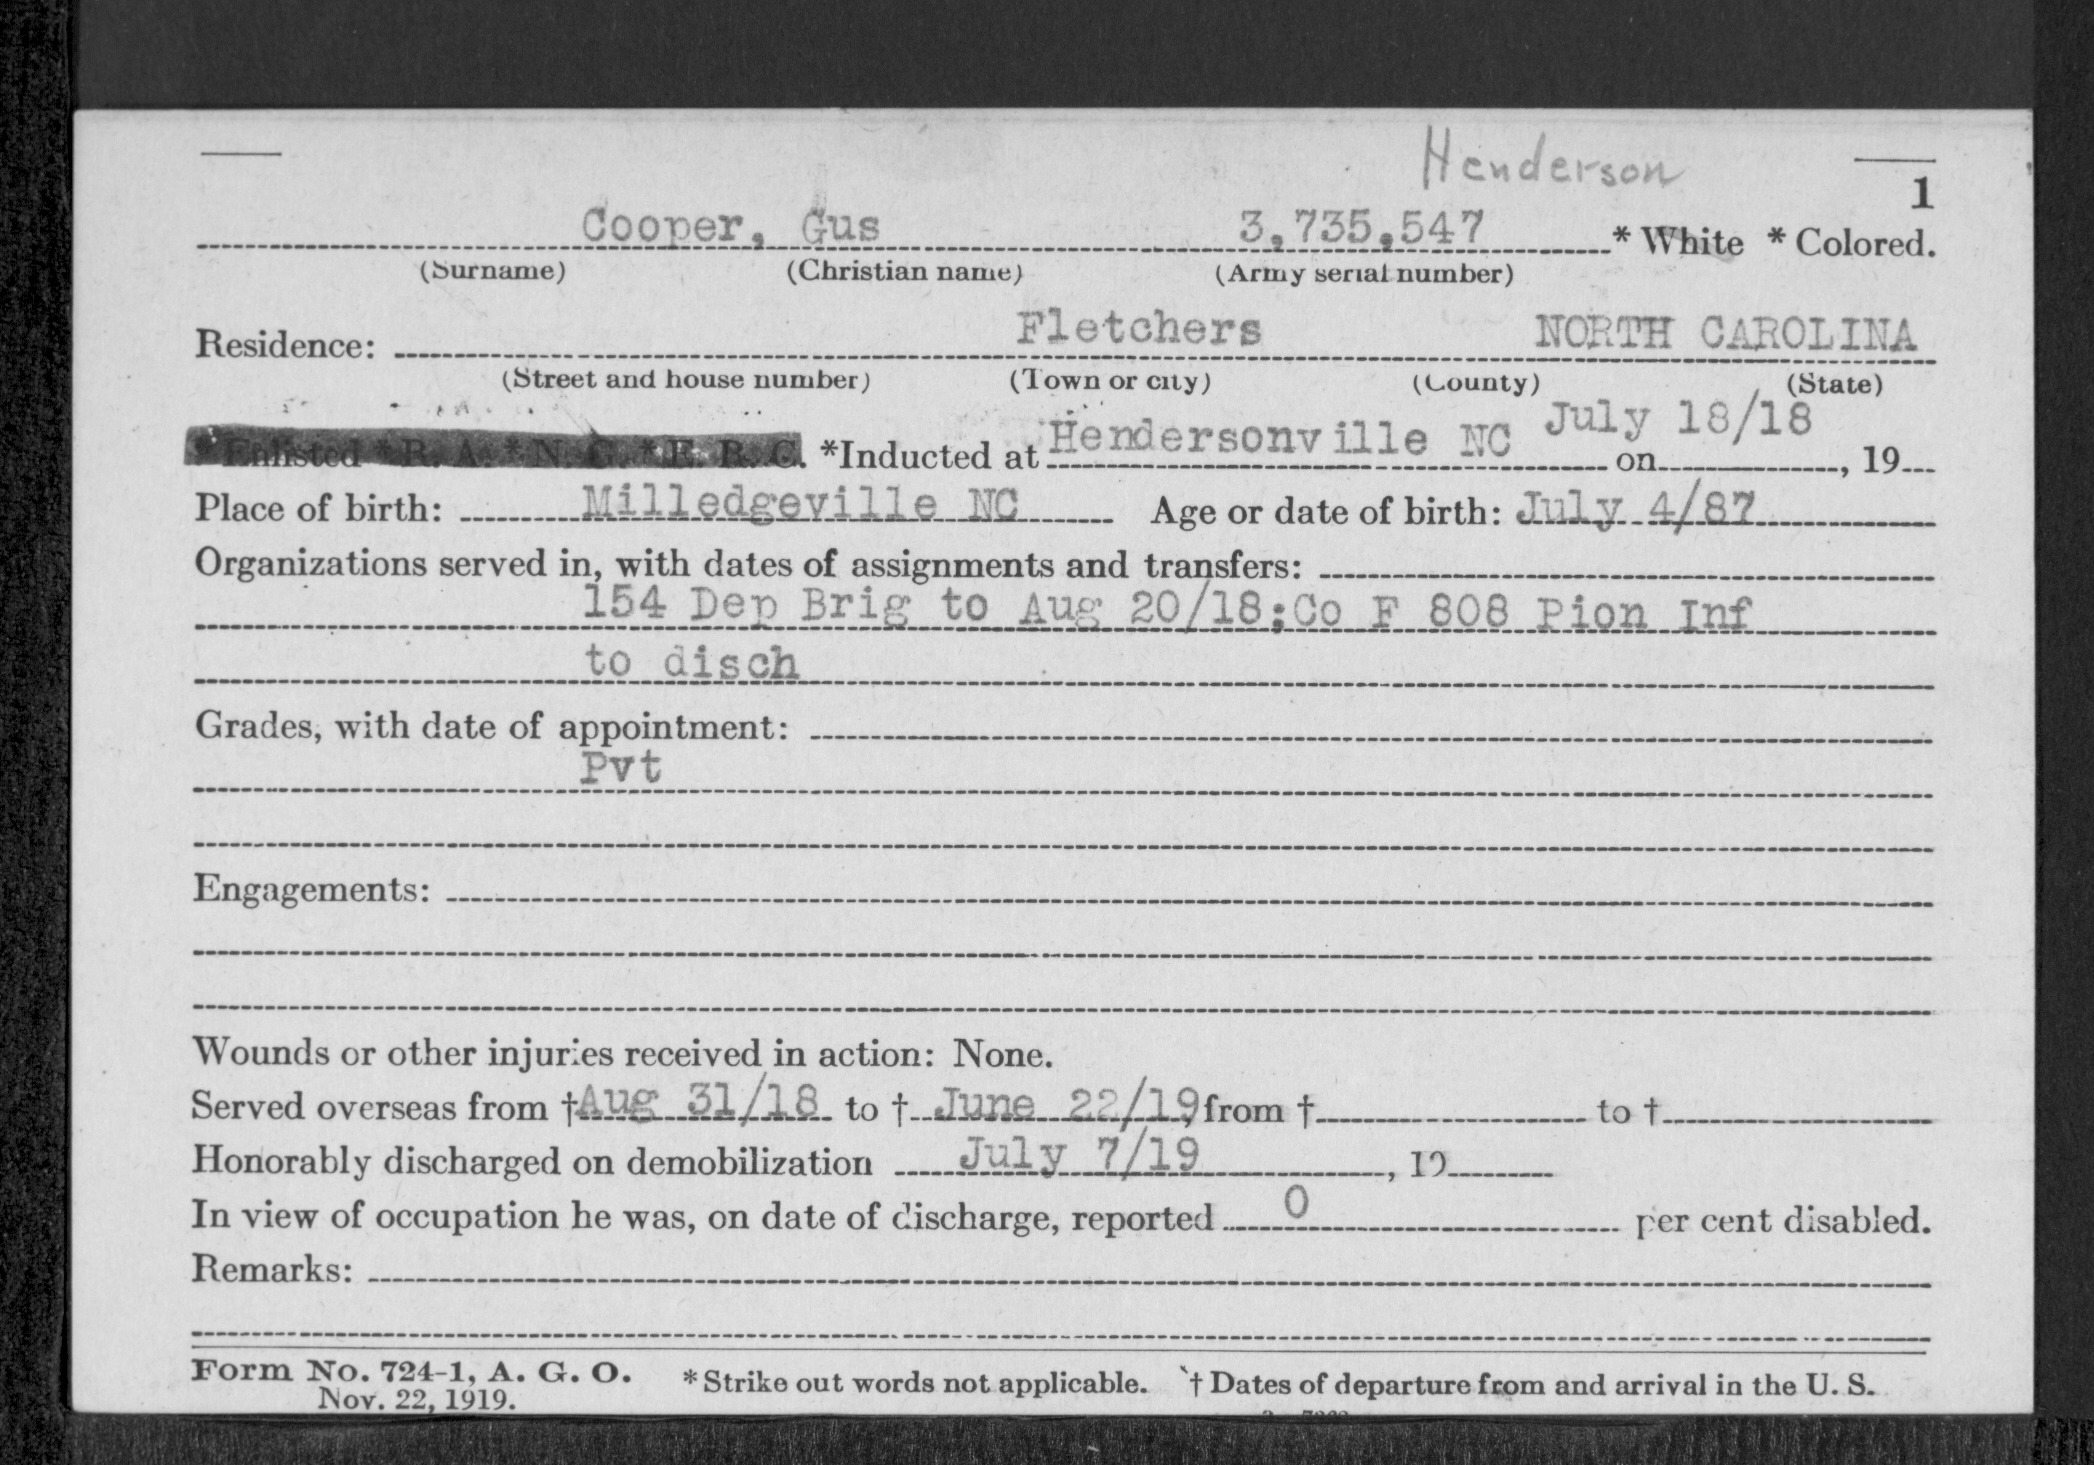 Henderson
1
Cooper, Gus 3,735,547 * White * Colored.
(Surname) (Christian name) (Army serial number)
Residence: Fletchers NORTH CAROLINA
(Street and house number) (Town or city) (County) (State)
* Enlisted * R. A. * N. G. * E. R. C. *Inducted at Hendersonville NC on July 18/18, 19
Place of birth: Milledgeville NC Age or date of birth: July 4/87
Organizations served in, with dates of assignments and transfers:
154 Dep Brig to Aug 20/18;Co F 808 Pion Inf
to disch
Grades, with date of appointment:
Pvt
Engagements:
Wounds or other injuries received in action: None.
Served overseas from †Aug 31/18 to † June 22/19, from † to †
Honorably discharged on demobilization July 7/19, 19
In view of occupation he was, on date of discharge, reported 0 per cent disabled.
Remarks:
Form No. 724-1, A. G. O. * Strike out words not applicable. † Dates of departure from and arrival in the U. S.
Nov. 22, 1919.